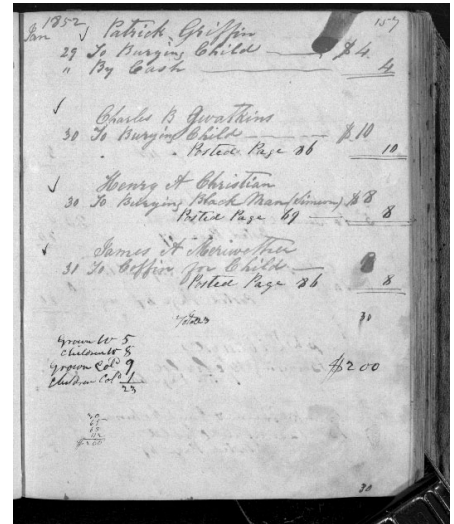 1852 157
Jan Patrick Griffin
29 To Burying Child $4
" By Cash 4
Charles B Gwatkins
30 To Burying Child $10
" Posted Page 36 10
Henry A Christian
30 To Burying Black Man (Simon) $8
Posted Page 69 8
James A Meriwether
31 To Coffin for Child 8
Posted Page 36 8
30
Grown W 5
Children W 8
Grown Cold 9 $200
Children Cold 1
23
30